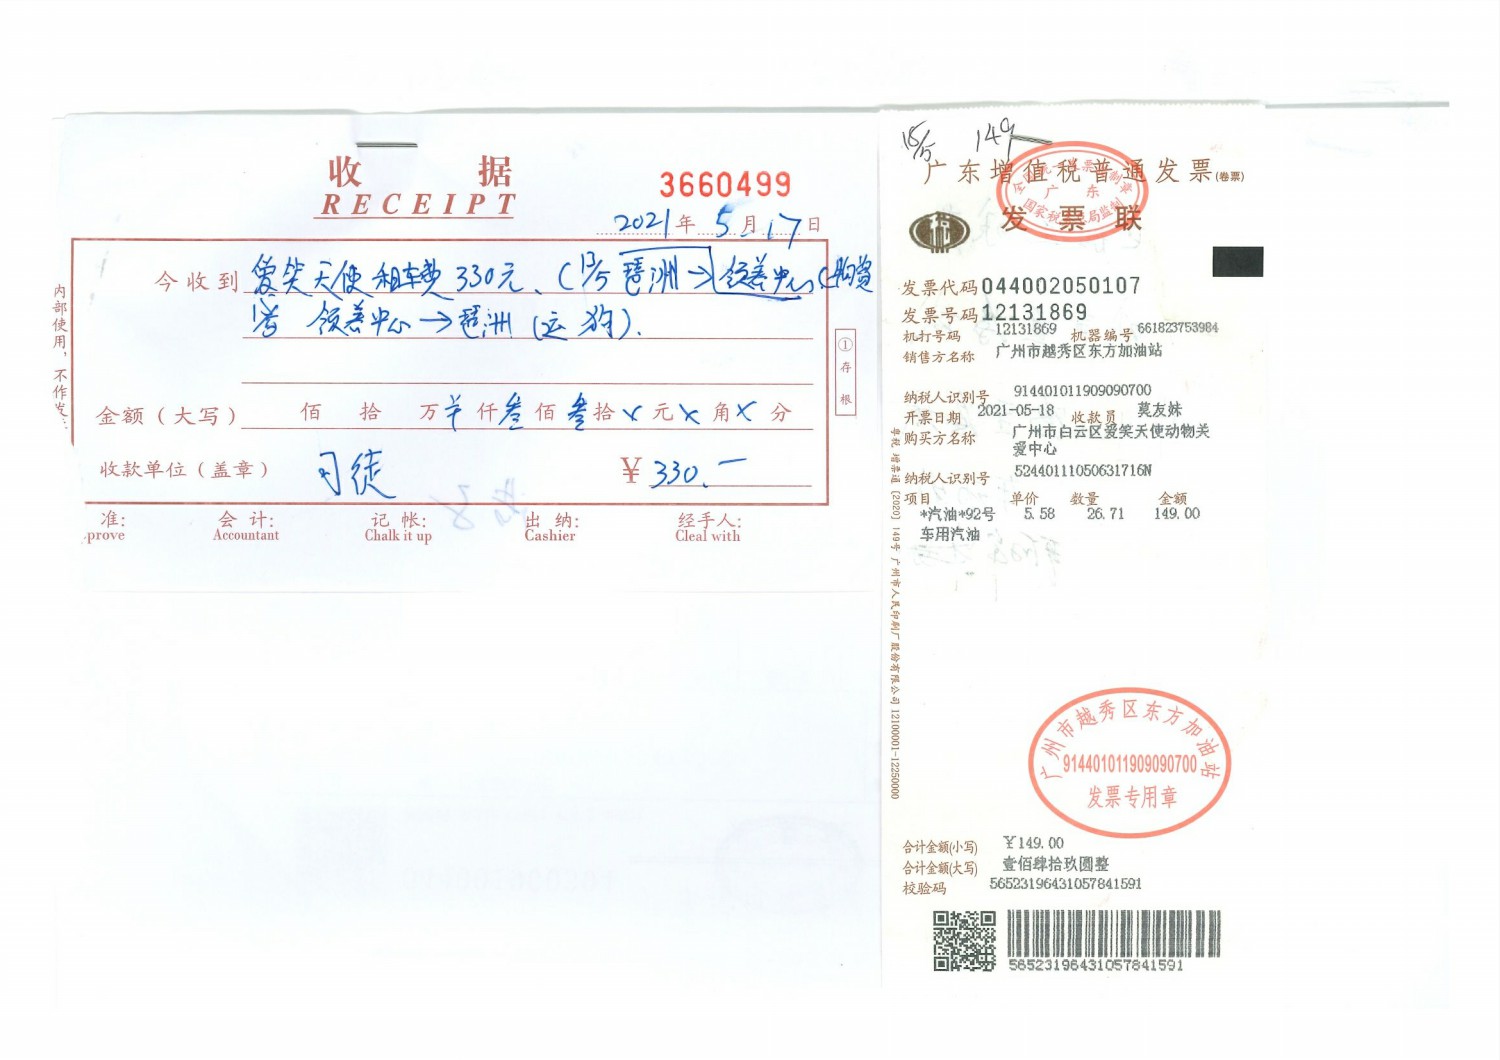 收 据
RECEIPT
3660499
2021年5月17日
今收到 爱笑天使租车费330元、(13/5 琵洲→领养中心(购货
领养中心→琶洲(运狗).
金额(大写) 佰 拾 万 仟叁佰叁拾x元x角x分
收款单位(盖章) 司徒 ¥ 330.一
准: 会 计: 记 帐: 出 纳: 经手人:
prove Accountant Chalk it up Cashier Cleal with
内部使用,不作发
①存根
18/5 149
广东增值税普通发票(卷票)
发票联
全国统一发票监制章
广 东
国家税务总局监制
税
发票代码044002050107
发票号码12131869
机打号码 12131869 机器编号 661823753984
销售方名称 广州市越秀区东方加油站
纳税人识别号 914401011909090700
开票日期 2021-05-18 收款员 莫友妹
购买方名称 广州市白云区爱笑天使动物关
爱中心
纳税人识别号 52440111050631716N
项目 单价 数量 金额
*汽油*92号 5.58 26.71 149.00
车用汽油
粤税 增票通 [2020] 149号 广州市人民印刷厂股份有限公司 12100001-12250000
广州市越秀区东方加油站
914401011909090700
发票专用章
合计金额(小写) ¥149.00
合计金额(大写) 壹佰肆拾玖圆整
校验码 56523196431057841591
56523196431057841591